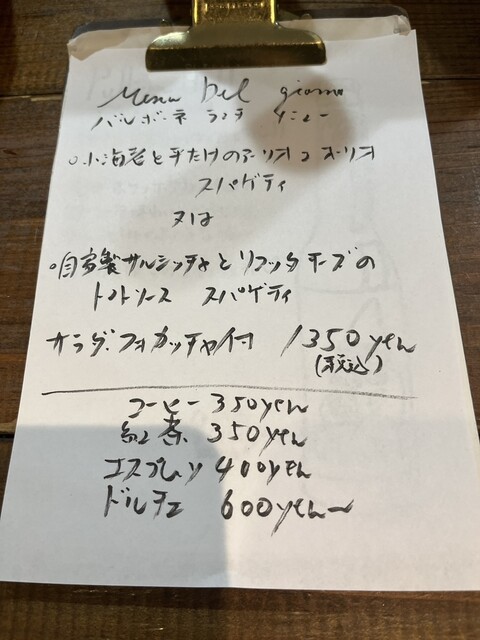 Menu Del giorno
バルボーネ ランチ メニュー
○小海老と平たけのアーリオエオーリオ
スパゲティ
又は
○自家製サルシッチャとリコッタチーズの
トマトソース スパゲティ
サラダ、フォカッチャ付 1350yen
(税込)
コーヒー 350yen
紅茶 350yen
エスプレッソ 400yen
ドルチェ 600yen〜